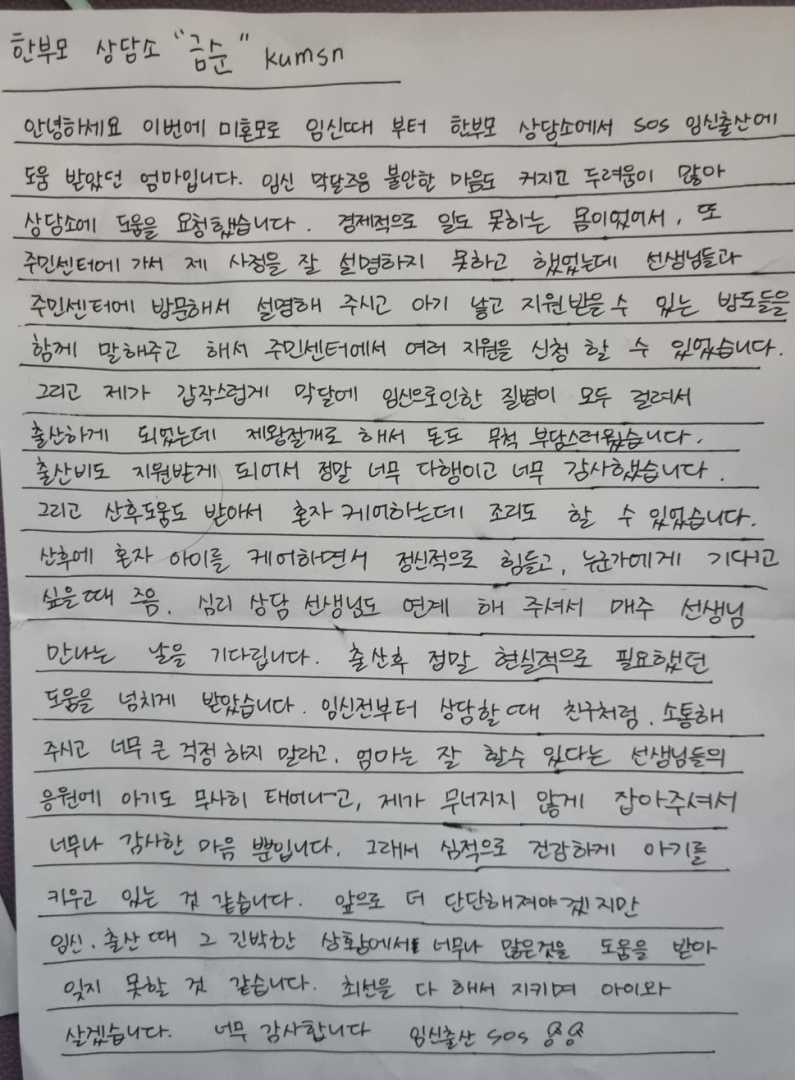 한부모 상담소 "금순" kumsn
안녕하세요 이번에 미혼모로 임신때 부터 한부모 상담소에서 SOS 임신출산에
도움 받았던 엄마입니다. 임신 막달즈음 불안한 마음도 커지고 두려움이 많아
상담소에 도움을 요청했습니다. 경제적으로 일도 못하는 몸이었어서, 또
주민센터에 가서 제 사정을 잘 설명하지 못하고 했었는데 선생님들과
주민센터에 방문해서 설명해 주시고 아기 낳고 지원받을 수 있는 방도들을
함께 말해주고 해서 주민센터에서 여러 지원을 신청 할 수 있었습니다.
그리고 제가 갑작스럽게 막달에 임신으로인한 질병이 모두 걸려서
출산하게 되었는데 제왕절개로 해서 돈도 무척 부담스러웠습니다.
출산비도 지원받게 되어서 정말 너무 다행이고 너무 감사했습니다.
그리고 산후도움도 받아서 혼자 케어하는데 조리도 할 수 있었습니다.
산후에 혼자 아이를 케어하면서 정신적으로 힘들고, 누군가에게 기대고
싶을때 즈음, 심리 상담 선생님도 연계 해 주셔서 매주 선생님
만나는 날을 기다립니다. 출산후 정말 현실적으로 필요했던
도움을 넘치게 받았습니다. 임신전부터 상담할 때 친구처럼, 소통해
주시고 너무 큰 걱정 하지 말라고, 엄마는 잘 할수 있다는 선생님들의
응원에 아기도 무사히 태어나고, 제가 무너지지 않게 잡아주셔서
너무나 감사한 마음 뿐입니다. 그래서 심적으로 건강하게 아기를
키우고 있는 것 같습니다. 앞으로 더 단단해져야겠지만
임신.출산 때 그 긴박한 상황에서 너무나 많은것을 도움을 받아
잊지 못할 것 같습니다. 최선을 다 해서 지키며 아이와
살겠습니다. 너무 감사합니다 임신출산 SOS